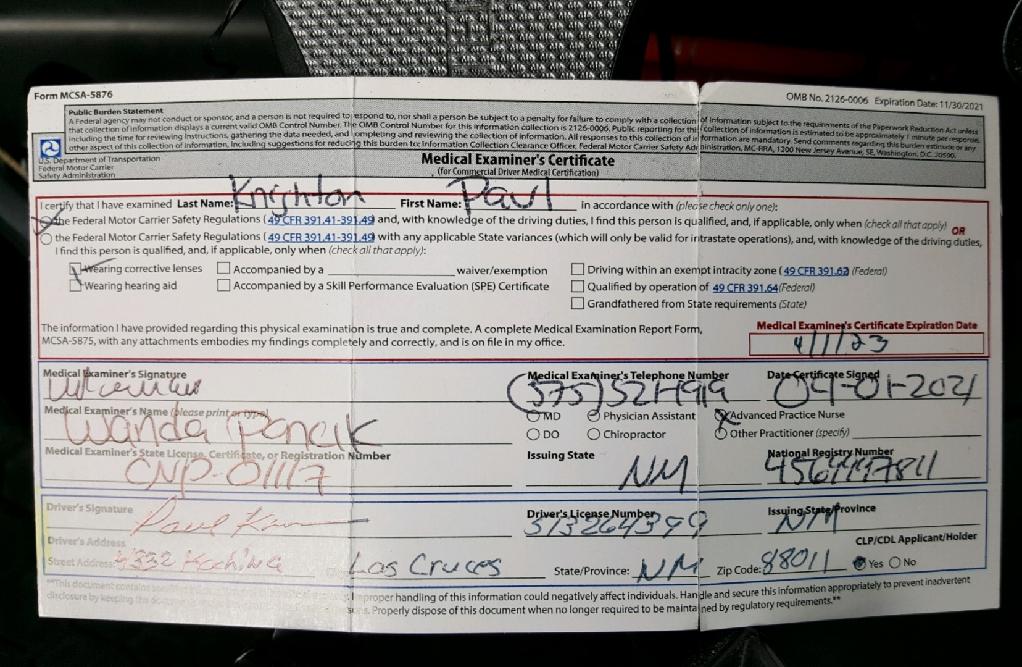 Form MCSA-5876
OMB No. 2126-0006 Expiration Date: 11/30/2021
Public Burden Statement
A Federal agency may not conduct or sponsor, and a person is not required to respond to, nor shall a person be subject to a penalty for failure to comply with a collection of information subject to the requirements of the Paperwork Reduction Act unless
that collection of information displays a current valid OMB Control Number. The OMB Control Number for this information collection is 2126-0006. Public reporting for this collection of information is estimated to be approximately 1 minute per response,
including the time for reviewing instructions, gathering the data needed, and completing and reviewing the collection of information. All responses to this collection of information are mandatory. Send comments regarding this burden estimate or any
other aspect of this collection of information, including suggestions for reducing this burden to: Information Collection Clearance Officer, Federal Motor Carrier Safety Administration, MC-RRA, 1200 New Jersey Avenue, SE, Washington, D.C. 20590.
U.S. Department of Transportation
Federal Motor Carrier
Safety Administration
Medical Examiner's Certificate
(for Commercial Driver Medical Certification)
I certify that I have examined Last Name: Knighton First Name: Paul in accordance with (please check only one):
the Federal Motor Carrier Safety Regulations (49 CFR 391.41-391.49) and, with knowledge of the driving duties, I find this person is qualified, and, if applicable, only when (check all that apply) OR
the Federal Motor Carrier Safety Regulations (49 CFR 391.41-391.49) with any applicable State variances (which will only be valid for intrastate operations), and, with knowledge of the driving duties,
I find this person is qualified, and, if applicable, only when (check all that apply):
Wearing corrective lenses Accompanied by a waiver/exemption Driving within an exempt intracity zone (49 CFR 391.62) (Federal)
Wearing hearing aid Accompanied by a Skill Performance Evaluation (SPE) Certificate Qualified by operation of 49 CFR 391.64 (Federal)
Grandfathered from State requirements (State)
The information I have provided regarding this physical examination is true and complete. A complete Medical Examination Report Form,
MCSA-5875, with any attachments embodies my findings completely and correctly, and is on file in my office.
Medical Examiner's Certificate Expiration Date
4/1/23
Medical Examiner's Signature Medical Examiner's Telephone Number Date Certificate Signed
(575)521-1919 04-01-2021
Medical Examiner's Name (please print or type) MD Physician Assistant Advanced Practice Nurse
Wanda Pancik DO Chiropractor Other Practitioner (specify)
Medical Examiner's State License, Certificate, or Registration Number Issuing State National Registry Number
CNP-01117 NM
Driver's Signature Driver's License Number Issuing State/Province
Paul 513264399 NM
Driver's Address CLP/CDL Applicant/Holder
Street Address: 4332 Las Cruces State/Province: NM Zip Code: 88011 Yes No
**This document contains
disclosure by keeping improper handling of this information could negatively affect individuals. Handle and secure this information appropriately to prevent inadvertent
Properly dispose of this document when no longer required to be maintained by regulatory requirements.**